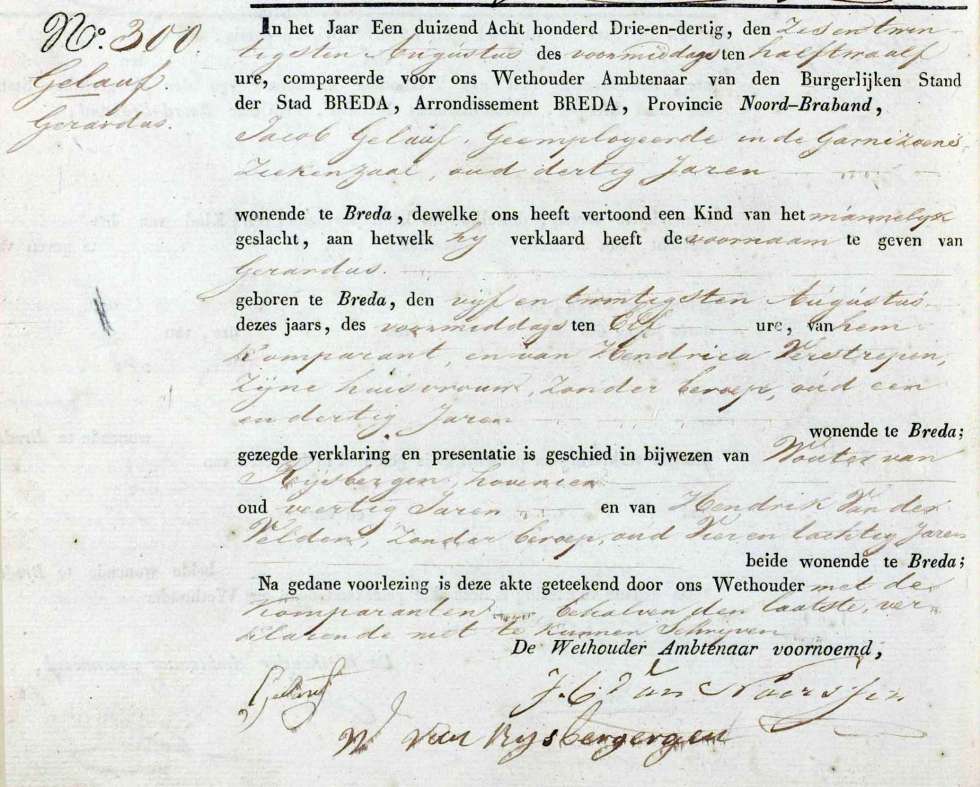 No. 300.
Gelauf
Gerardus.
In het Jaar Een duizend Acht honderd Drie-en-dertig, den Zesentwin-
tigsten Augustus des voormiddags ten halftwaalf
ure, compareerde voor ons Wethouder Ambtenaar van den Burgerlijken Stand
der Stad BREDA, Arrondissement BREDA, Provincie Noord-Braband,
Jacob Gelauf, Geemployeerde in de Garnizoens-
Ziekenzaal, oud dertig Jaren
wonende te Breda, dewelke ons heeft vertoond een Kind van het mannelyk
geslacht, aan hetwelk hy verklaard heeft de voornaam te geven van
Gerardus.
geboren te Breda, den vyf en twintigsten Augustus
dezes jaars, des voormiddags ten Elf ure, van hem
Komparant, en van Hendrica Verstrepen,
Zyne huisvrouw, Zonder beroep, oud een
en dertig Jaren
wonende te Breda;
gezegde verklaring en presentatie is geschied in bijwezen van Wouter van
Rysbergen, hovenier
oud veertig Jaren en van Hendrik Van der
Velden, Zonder beroep, oud Vier en tachtig Jaren
beide wonende te Breda;
Na gedane voorlezing is deze akte geteekend door ons Wethouder met de
Komparanten, behalven den laatste, ver-
klarende niet te kunnen Schryven
De Wethouder Ambtenaar voornoemd,
Gelauf
J. C. Van Naerssen
W van Rysbergergen